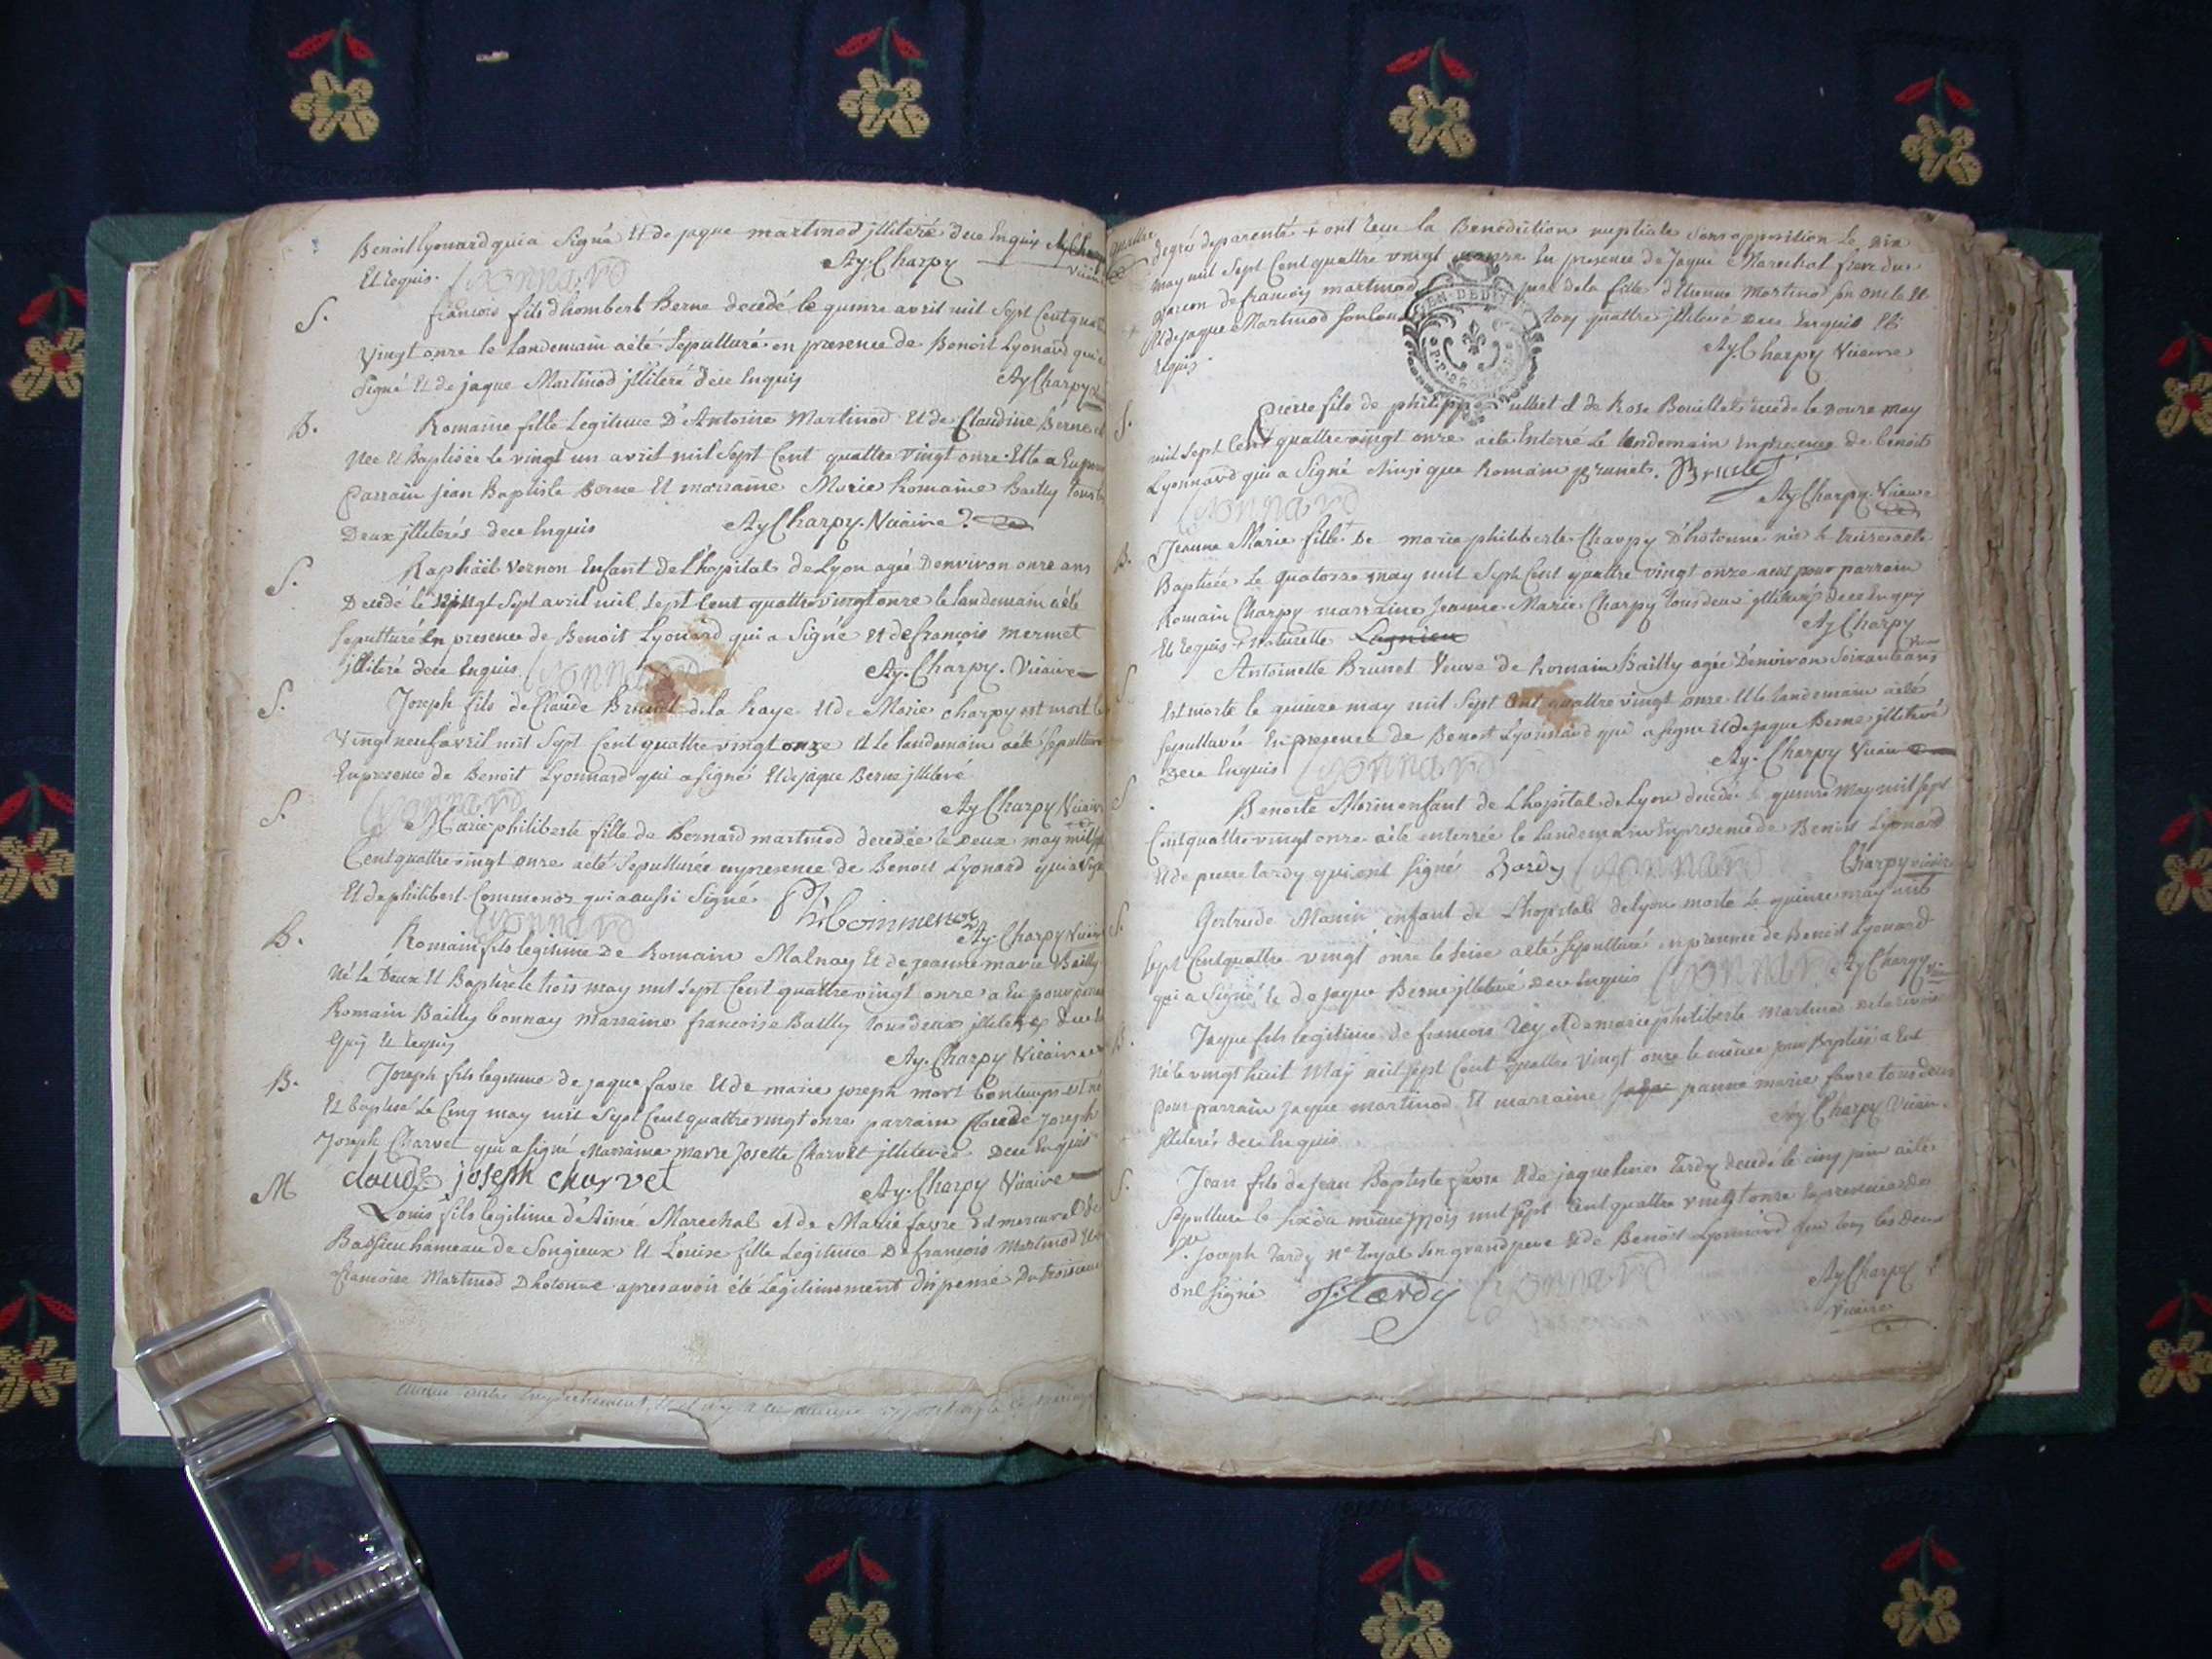 Benoit Lyonard qui a Signé Et de jaque martinod jlliteré dece Enquis
Et requis. Lyonnard Ay. Charpy
S. francois fils d'hombert Berne decedé le quinze avril mil Sept Cent quatre
Vingt onze le landemain aété Sepulturé en presence de Benoit Lyonard qui a
Signé Et de jaque Martinod jlliteré dece Enquis Ay Charpy
B. Romaine fille Legitime D'Antoine Martinod Et de Claudine Berne
Née Et Baptisée le vingt un avril mil Sept Cent quattre Vingt onze Elle a Eu pour
parrain jean Baptiste Berne Et marraine Marie Romaine Bailly tous les
Deux jlliterés dece Enquis Ay Charpy. Vicaire
S. Raphäel Vernon Enfant de L'hopital de Lyon agée Denviron onze ans
Decedé le vingt Sept avril mil Sept Cent quattre vingt onze le landemain aété
Sepulturé En presence de Benoit Lyonard qui a Signé Et de francois mermet
jlliteré dece Enquis Lyonnard Ay. Charpy. Vicaire
S. Joseph fils de Claude Brunet dela haye Et de Marie charpy est mort le
Vingt neuf avril mil Sept Cent quattre vingt onze Et Le landemain aété Sepulturé
En presence de Benoit Lyonnard qui a signé Et de jaque Berne jlliteré
Lyonnard Ay Charpy Vicaire
S. Marie philiberte fille de Bernard martinod decedée le Deux may mil sept
Cent quattre vingt onze aeté Sepulturée en presence de Benoit Lyonard qui a Signé
Et de philibert Commenoz qui a aussi Signé Ph: Commenoz
Lyonnard Ay. Charpy Vicaire
B. Romain fils legitime De Romain Malnay Et de jeanne marie Bailly
Né le Deux Et Baptisé le trois may mil Sept Cent quattre vingt onze a Eu pour parrain
Romain Bailly bonnay Marraine francoise Bailly tous deux jlliterés dece En
quis Et requis Ay. Charpy Vicaire
B. Joseph fils legitime de jaque favre Et de marie joseph mort Bontemps est né
Et baptisé Le Cinq may mil Sept Cent quattre vingt onze parrain Claude Joseph
Joseph Charvet qui a signé Marraine marie Josette Charvet jlliterée Dece Enquis
claude joseph charvet Ay. Charpy Vicaire
M Louis fils legitime d'Aimé Marechal et de Marie favre
Bassieu hameau de Songieux Et Louise fille Legitime De françois Martinod Et de
francoise Martinod D hotonne apres avoir été Légitimement dispensé Du troisieme
quattre degré de parenté + ont recu la Benediction nuptiale sans opposition Le Dix
may mil Sept Cent quattre vingt onze En presence de Jaque Marechal frere du
garcon de francois martinod pere dela fille d'Etienne Martinod son oncle Et
Et de jaque Martinod tous quattre jlliteré Dece Enquis Et
requis Ay. Charpy Vicaire
GEN. DE DIJON
S. pierre fils de philippe ulliet et de Rose Bouillet decedé le douze may
mil Sept Cent quattre vingt onze aété Enterré Le landemain En presence de benoit
Lyonnard qui a Signé Ainsi que Romain Brunet. Brunet
Lyonnard Ay Charpy. Vicaire
B. Jeanne Marie fille+ De marie philiberte Charpy D'hotonne née le treize aété
Baptisée Le quatorze may mil Sept Cent quattre vingt onze aeut pour parrain
Romain Charpy marraine Jeanne Marie Charpy tous deux jlliterés dece Enquis
Et requis + Naturelle Ay Charpy
S. Antoinette Brunet Veuve de Romain Bailly agée D'environ Soixante ans
Est morte le quinze may mil Sept Cent quattre vingt onze Et le landemain aété
sepulturée En presence de Benoit Lyonnard qui a signé Et de jaque Berne jlliteré
Dece Enquis Lyonnard Ay. Charpy Vicaire
S. Benoite Morin enfant de L'hopital de Lyon decedé le quinze May mil sept
Cent quattre vingt onze aété enterrée le landemain En presence de Benoit Lyonard
Et de pierre tardy qui ont signé Tardy Lyonnard Charpy vicaire
S. Gertrude Manin enfant de L'hopital de Lyon morte Le quinze may mil
Sept Cent quattre vingt onze le seize aété Sepulturé en presence de Benoit Lyonard
qui a Signé Et de Jaque Berne jlliteré Dece Enquis Lyonnard Ay Charpy
B. Jaque fils legitime de francois Rey et de marie philiberte martinod
Né le vingt huit May mil Sept Cent quattre Vingt onze le même jour Baptisé a Eut
pour parrain Jaque martinod Et marraine jeanne marie favre tous deux
jlliterés dece Enquis Ay Charpy Vicaire
S. Jean fils de Jean Baptiste favre Et de jaqueline Tardy decedé le cinq juin aété
Sepulturé le six du même mois mil Sept Cent quattre vingt onze En presence de
Joseph Tardy Nre Royal Son grand pere Et de Benoit Lyonnard qui tous les Deux
ont signé J. Tardy Lyonnard Ay Charpy
Vicaire